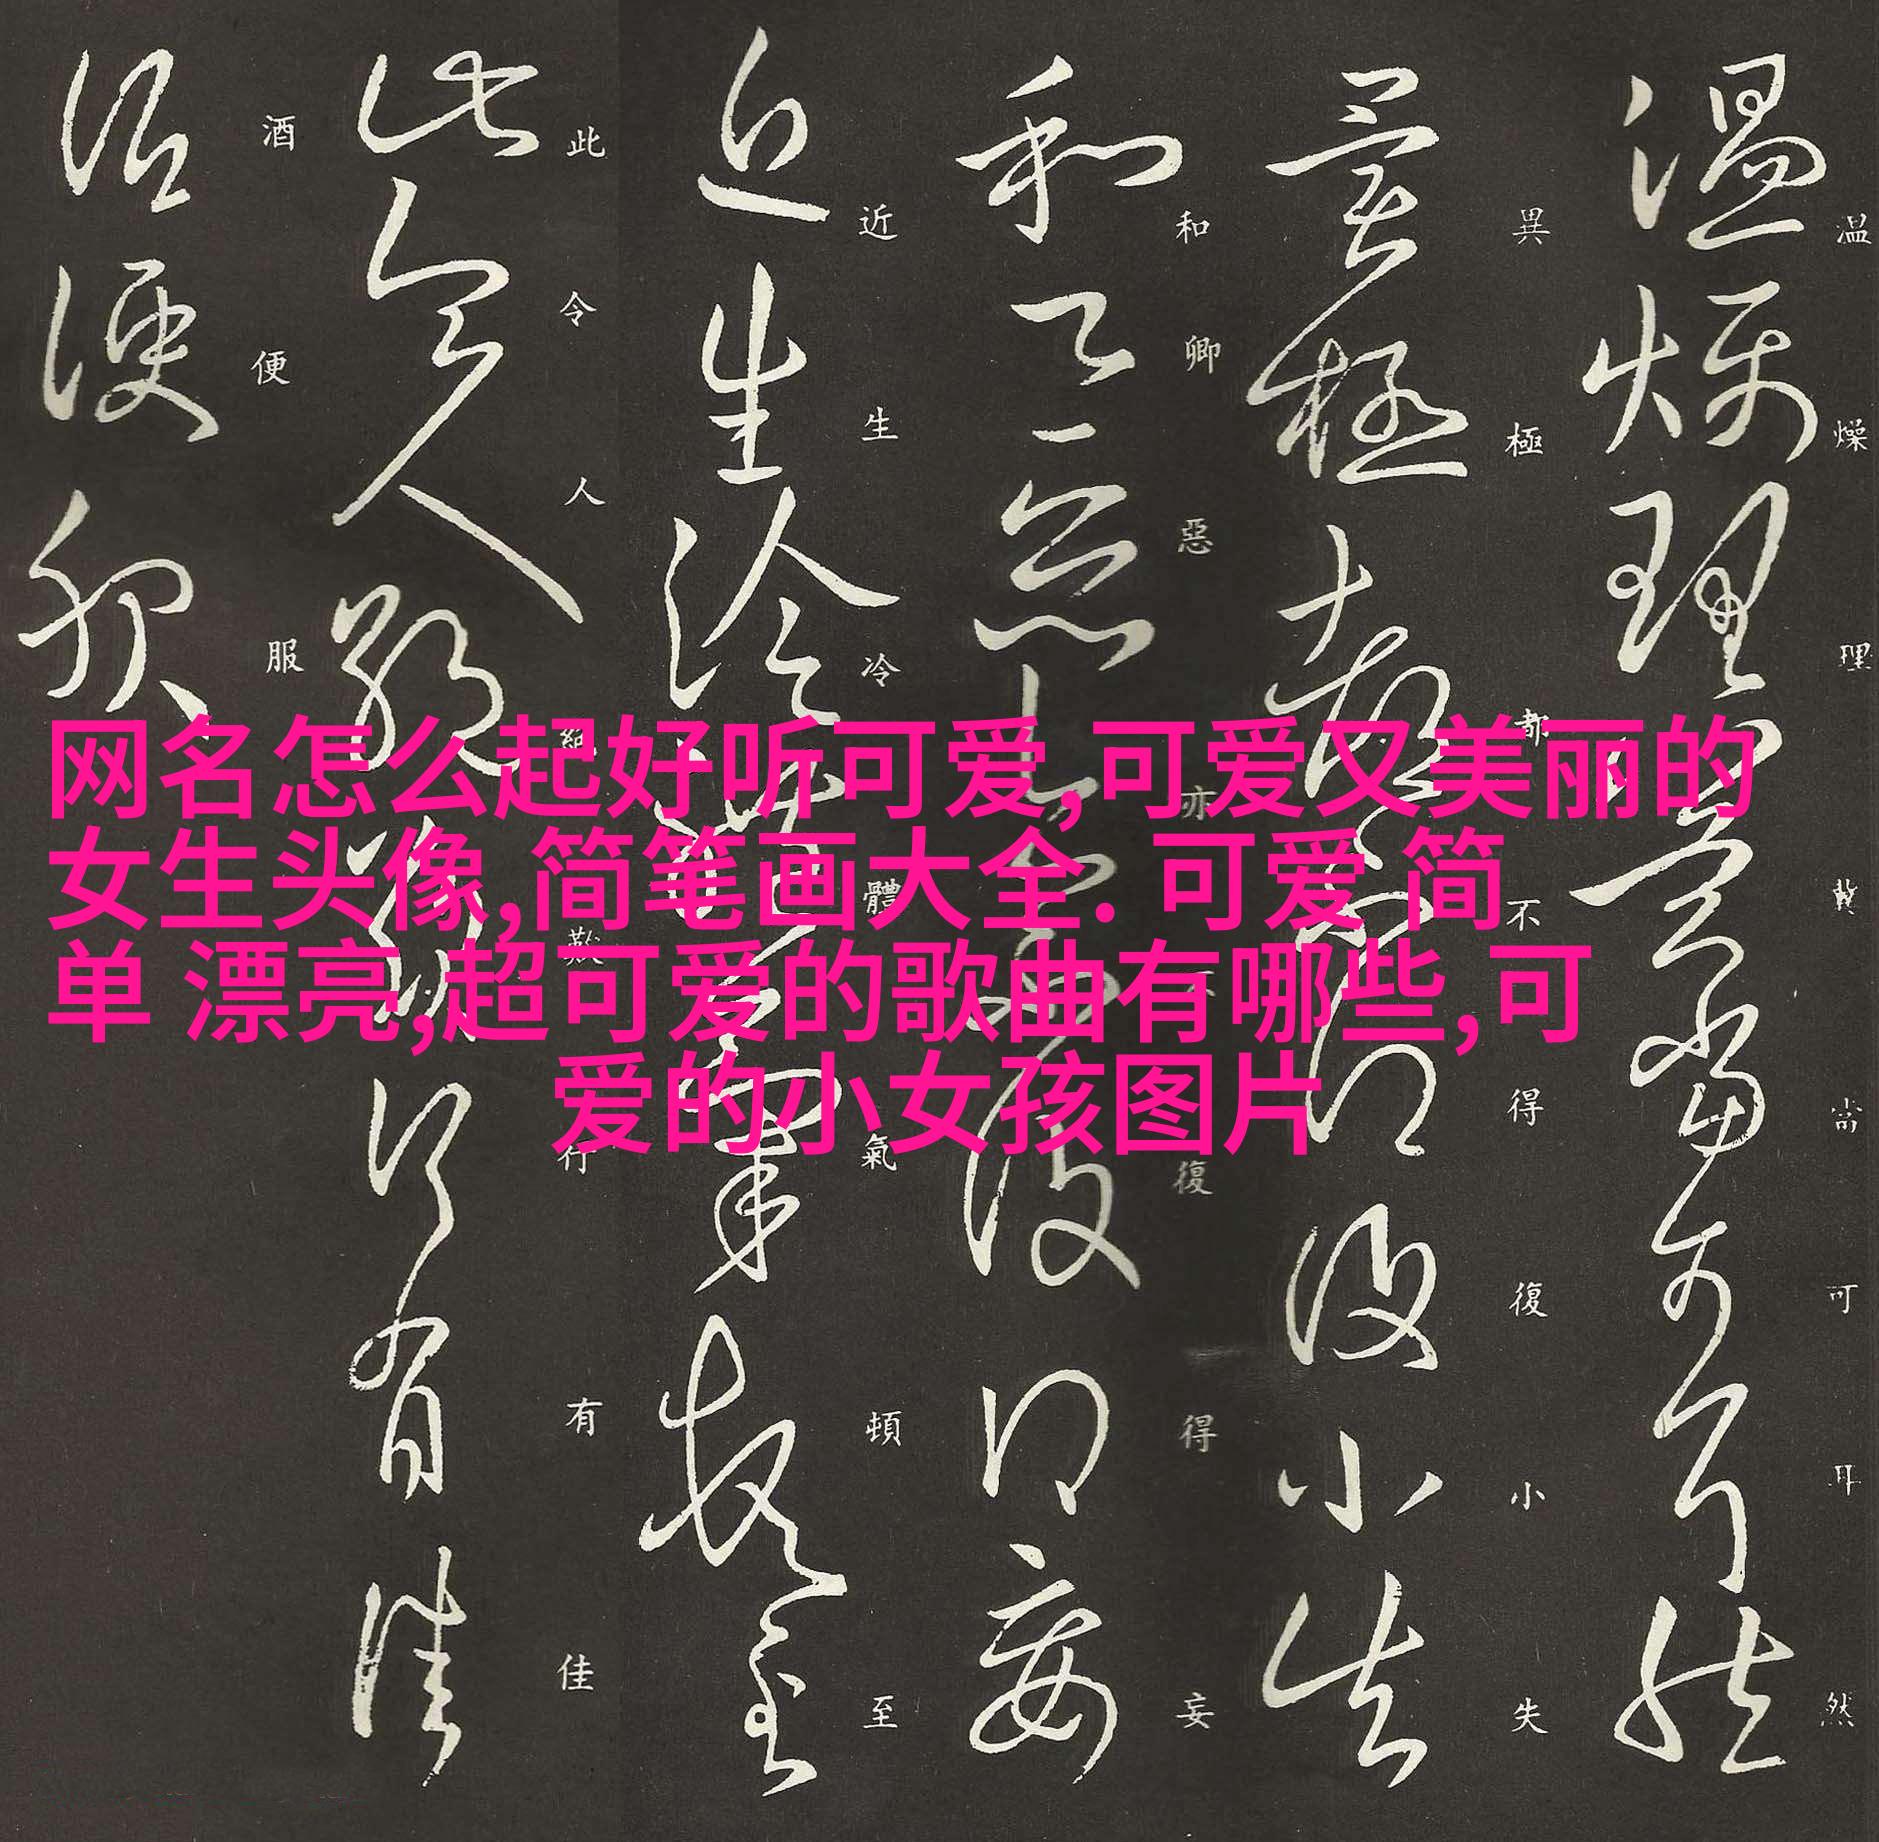 温燥理冀當可耳然
異極都不得復小失
和卿惡亦不復得妄
近生冷體氣頓至
此令人絕歎行有佳
酒便服
网名怎么起好听可爱,可爱又美丽的
女生头像,简笔画大全. 可爱 简
单 漂亮,超可爱的歌曲有哪些,可
爱的小女孩图片